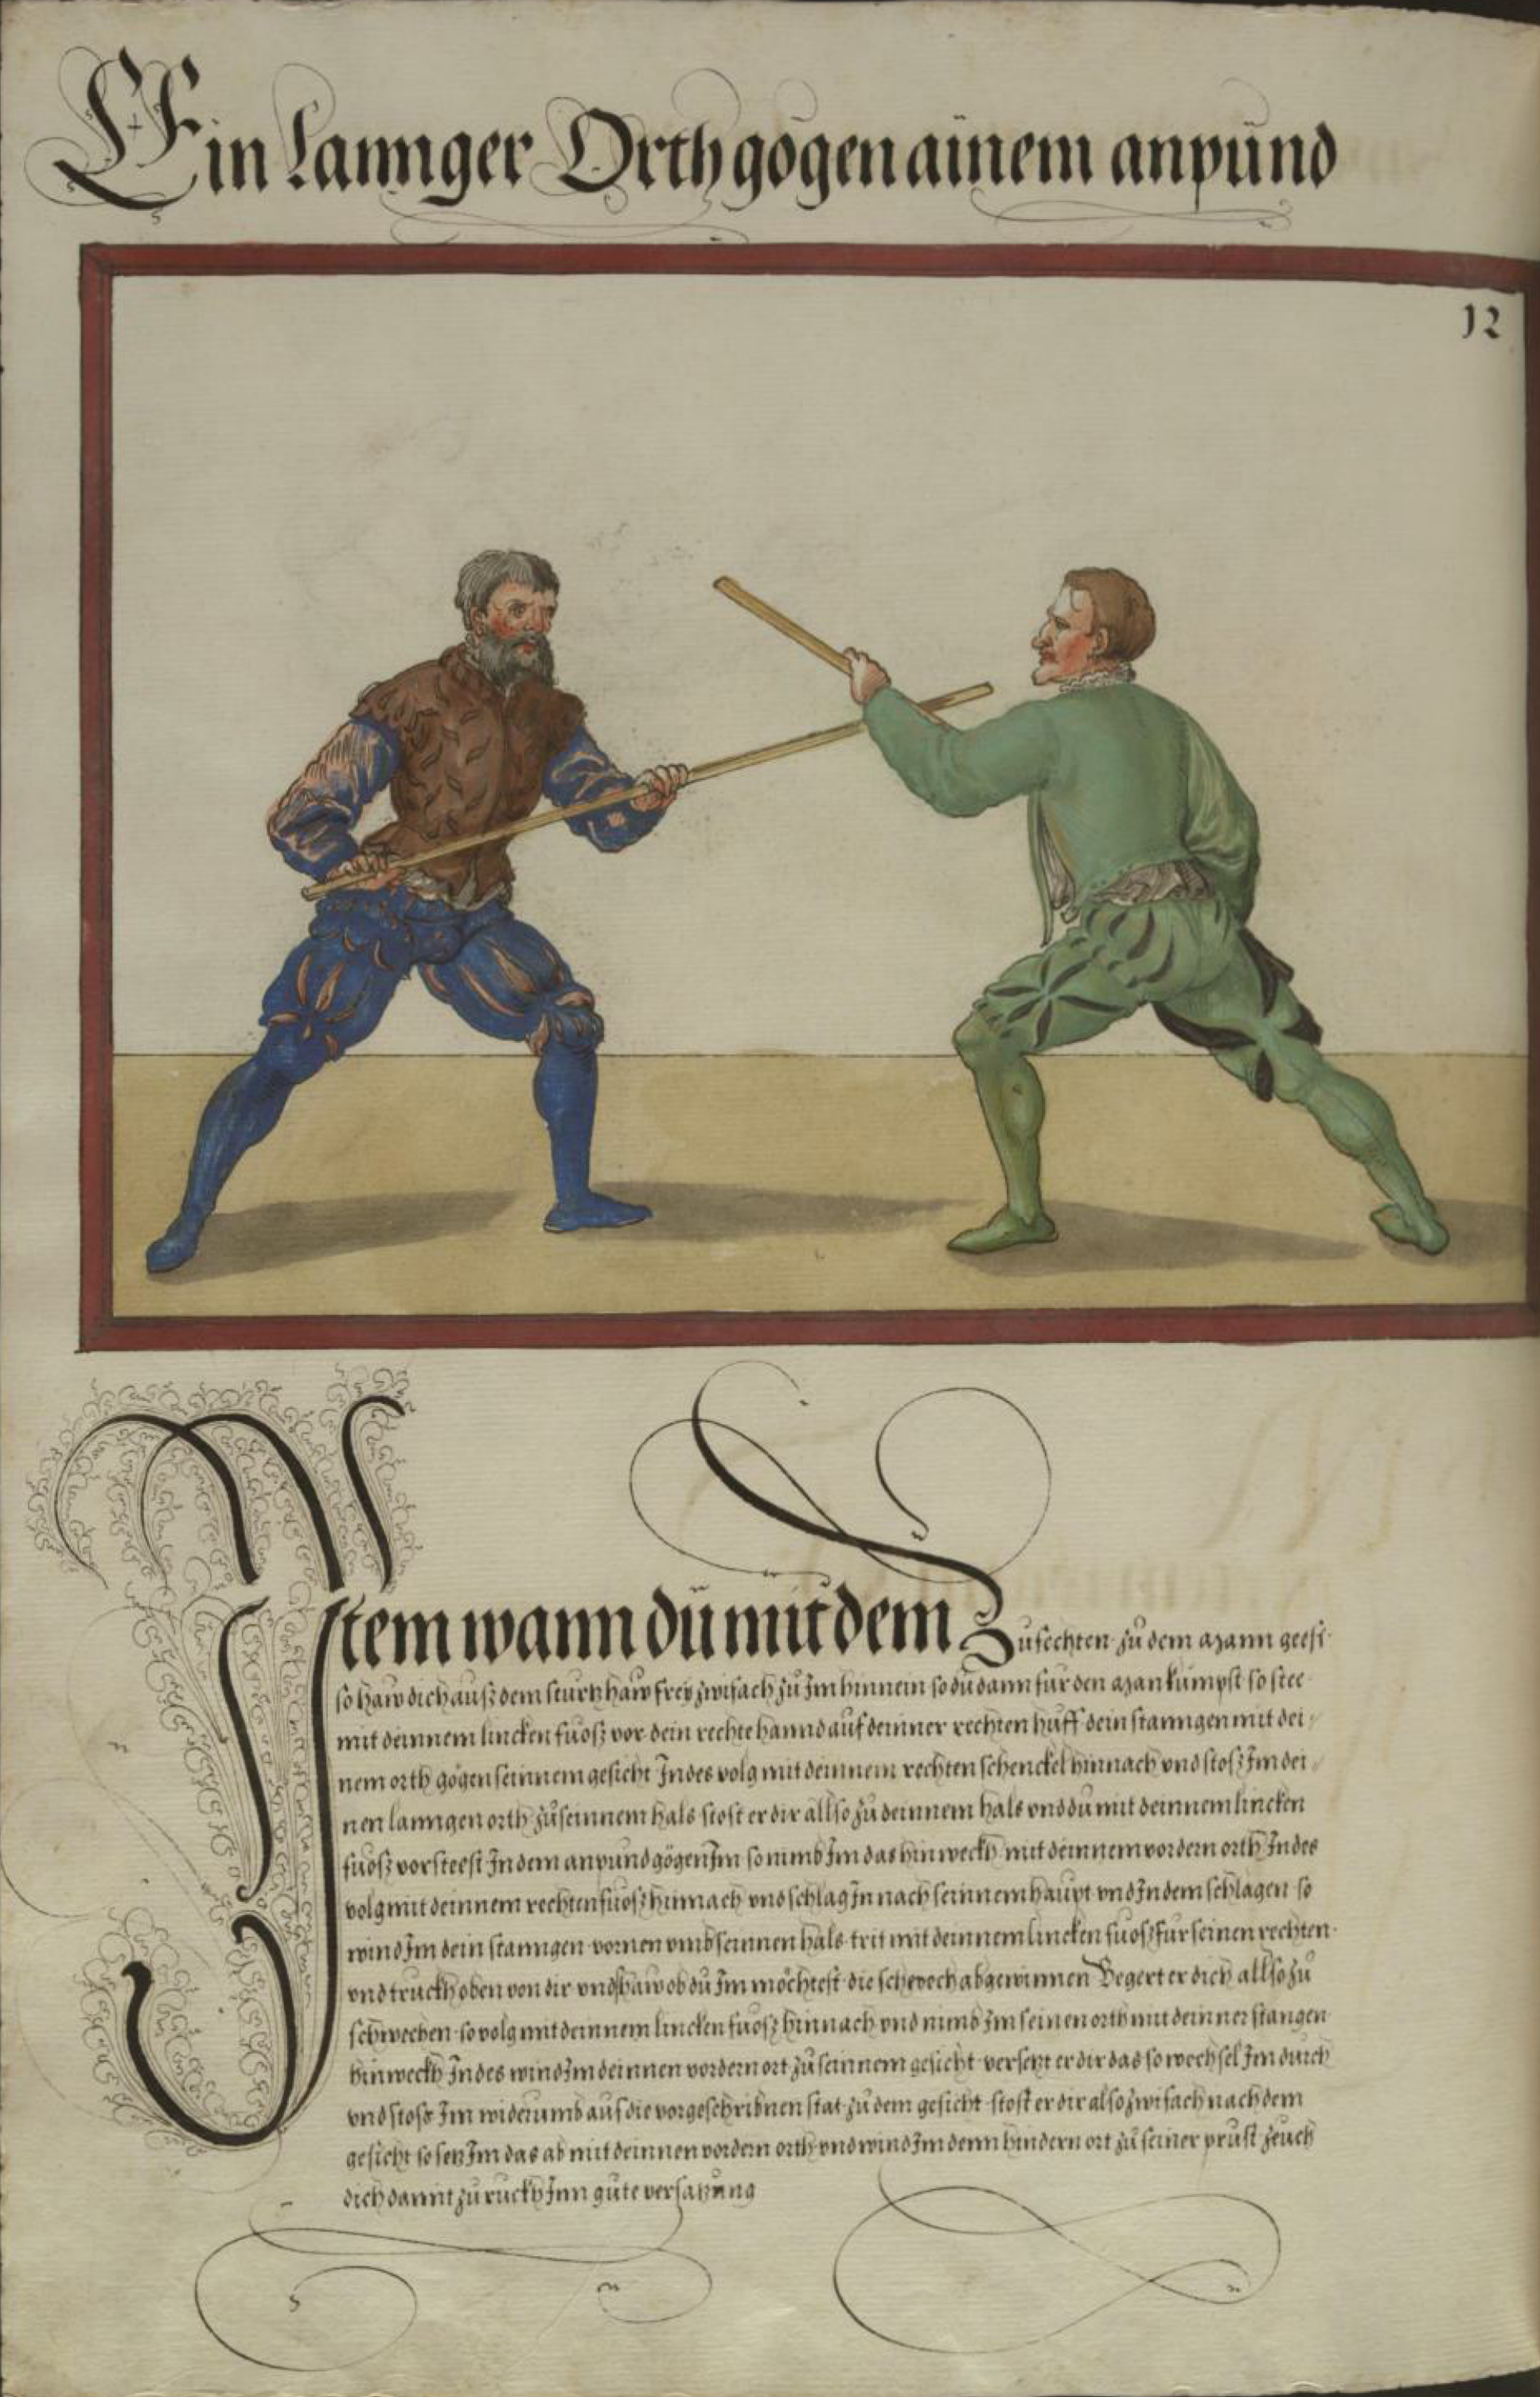 Ein lannger Orth gögen ainem anpünd
12
Item wann dü mit dem Zufechten zů dem Mann geest
so haw dich auß dem sturtzhaw frey zwifach zů Im hinnein so dů dann für den Man kümpst so stee
mit deinnem lincken fůoß vor dein rechte hannd auf deinner rechten hüff dein stanngen mit dei
nem orth gögen seinnem gesicht Indes volg mit deinnem rechten schenckel hinnach vnd stoß Im dei
nen lanngen orth zů seinnem hals stost er dir allso zů deinnem hals vnd dů mit deinnem lincken
fůoß vorsteest In dem anpund gögen Im so nimb Im das hinweckh mit deinnem vordern orth Indes
volg mit deinnem rechten fůoß hinnach vnd schlag In nach seinnem haupt vnd In dem schlagen so
wind Im dein stanngen vornen vmb seinnen hals trit mit deinnem lincken fůoß für seinen rechten
vnd truckh oben von dir vnd schaw ob dů Im möchtest die schwech abgewinnen Begert er dich allso zů
schwechen so volg mit deinnem lincken fůoß hinnach vnd nimb Im seinen orth mit deinner stangen
hinweckh Indes wind Im deinnen vordern ort zů seinnem gesicht versetzt er dir das so wechsel Im durch
vnd stoß Im widerumb auf die vorgeschribnen stat zů dem gesicht stost er dir also zwifach nach dem
gesicht so setz Im das ab mit deinnen vordern orth vnd wind Im denn hindern ort zů seiner prust zeuch
dich damit zů ruckh Inn gůte versatzung